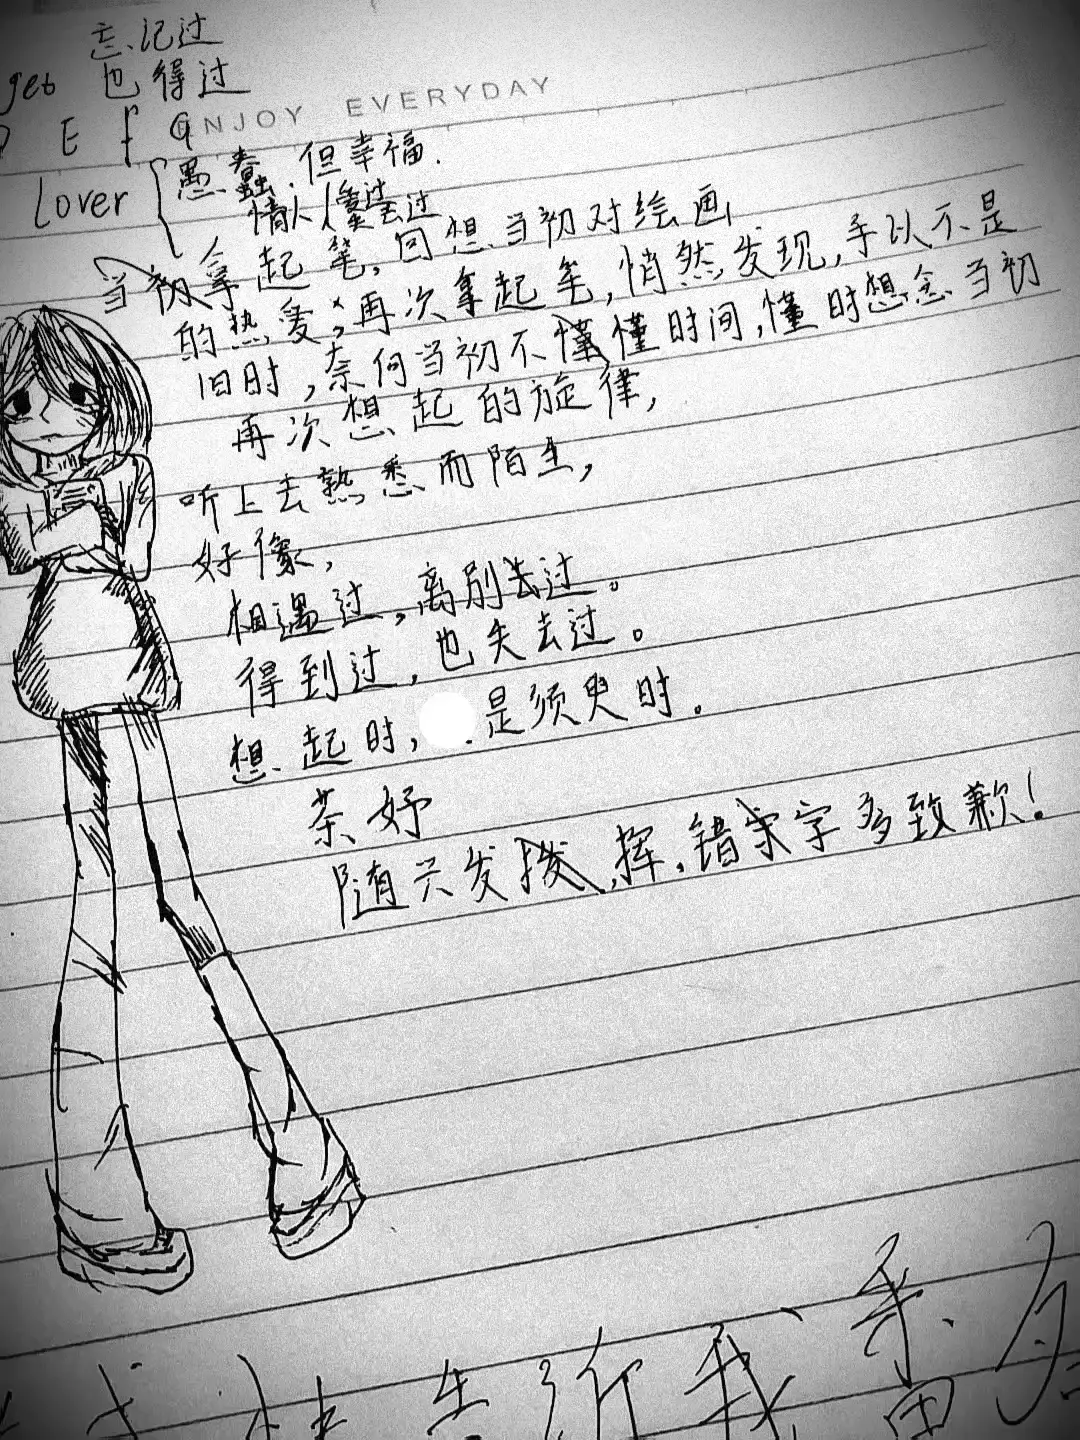 忘记过
get 也得过
E f G ENJOY EVERYDAY
Lover 愚蠢.但幸福.
情人 爱过
去过
当初拿起笔,回想当初对绘画
的热爱;再次拿起笔,悄然发现,手以不是
旧时,奈何当初不懂懂时间,懂时想念当初
再次想起的旋律,
听上去熟悉而陌生,
好像,
相遇过,离别去过。
得到过,也失去过。
想起时, 是须臾时。
茶妤
随兴发拨,挥,错字多致歉!
告诉我